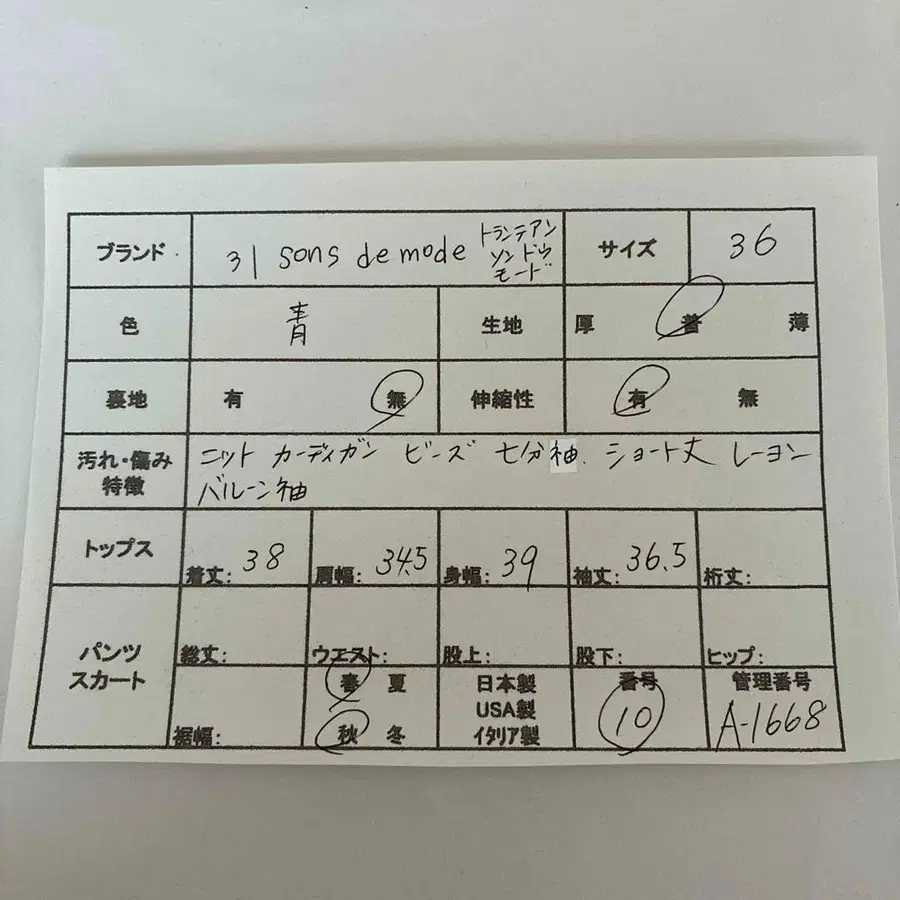 ブランド 31 sons de mode トランテアン ソンドゥ モード サイズ 36
色 青 生地 厚 普 薄
裏地 有 無 伸縮性 有 無
汚れ・傷み 特徴 ニット カーディガン ビーズ 七分袖、ショート丈 レーヨン
バルーン袖
トップス 着丈: 38 肩幅: 34.5 身幅: 39 袖丈: 36.5 裄丈:
パンツ スカート 総丈: ウエスト: 股上: 股下: ヒップ:
裾幅: 春 夏 秋 冬 日本製 USA製 イタリア製 番号 10 管理番号 A-1668